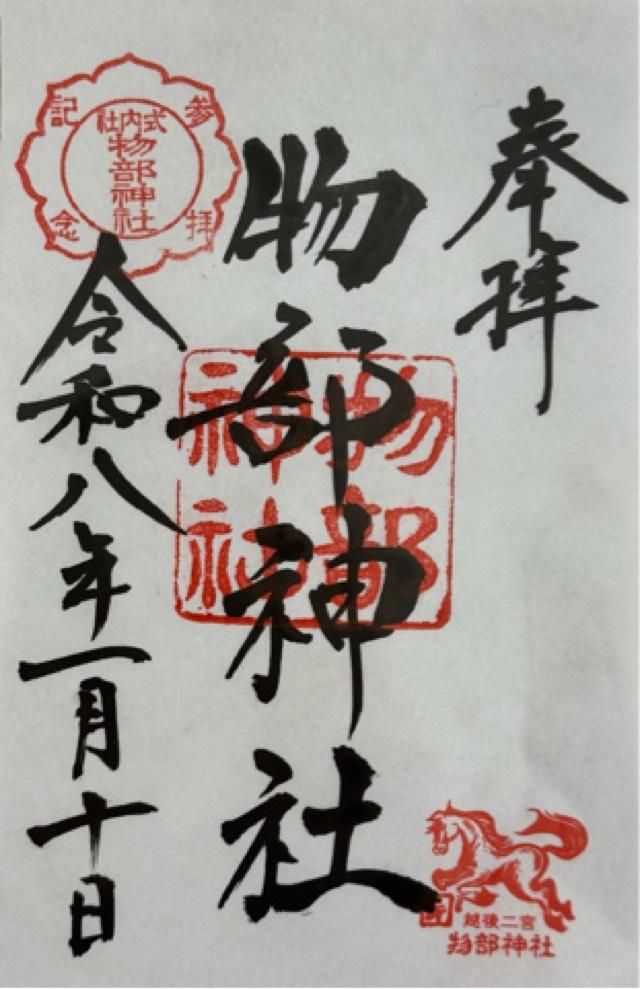 奉拝
物部神社
物部神社
令和八年一月十日
参拝記念
式内社
物部神社
越後二宮
物部神社